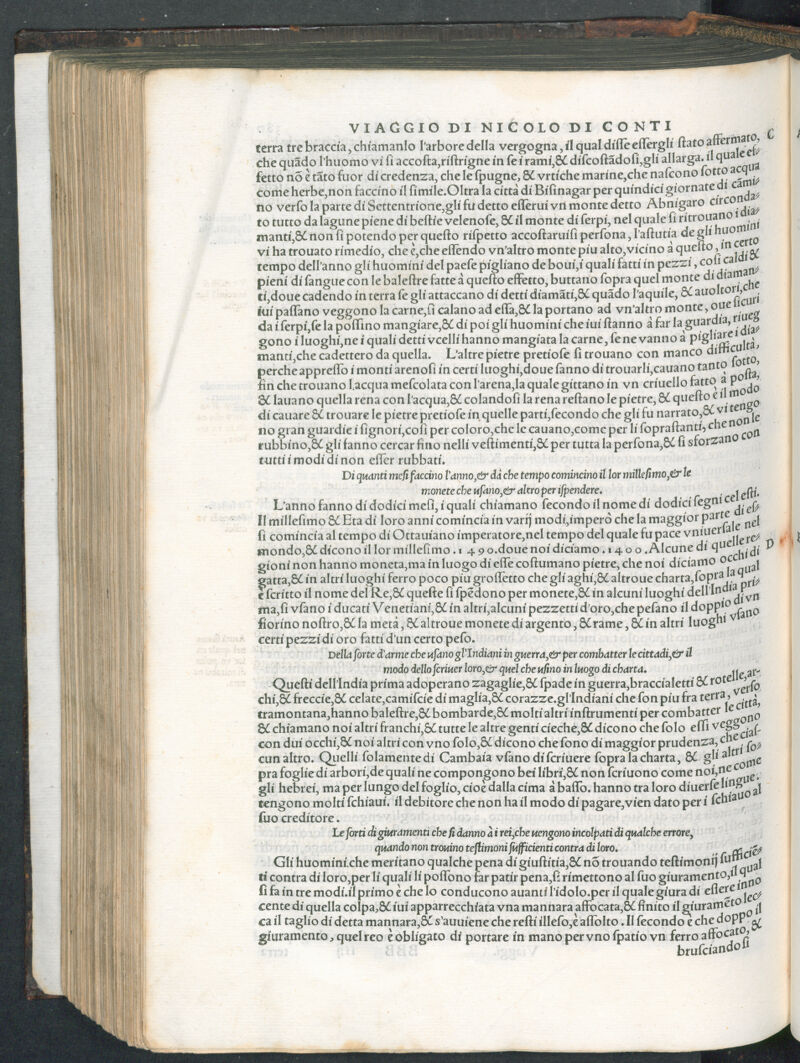 VIAGGIO DI NICOLO DI CONTI
terra tre braccia, chiamanlo l'arbore della vergogna, il qual disse essergli stato affermato, C
che quādo l'huomo vi si accosta, ristrigne in se i rami, & discostādosi, gli allarga. il quale ef⸗
fetto nō è tāto fuor di credenza, che le spugne, & vrtiche marine, che nascono sotto acqua
come herbe, non faccino il simile. Oltra la città di Bisinagar per quindici giornate di cami⸗
no verso la parte di Settentrione, gli fu detto esserui vn monte detto Abnigaro circonda⸗
to tutto da lagune piene di bestie velenose, & il monte di serpi, nel quale si ritrouano i dia⸗
manti, & non si potendo per questo rispetto accostaruisi persona, l'astutia de gli huomini
vi ha trouato rimedio, che è, che essendo vn'altro monte piu alto, vicino à questo, in certo
tempo dell'anno gli huomini del paese pigliano de boui, i quali fatti in pezzi, cosi caldi &
pieni di sangue con le balestre fatte à questo effetto, buttano sopra quel monte di diaman⸗
ti, doue cadendo in terra se gli attaccano di detti diamāti, & quādo l'aquile, & auoltori, che
iui passano veggono la carne, si calano ad essa, & la portano ad vn'altro monte, oue sicuri
da i serpi, se la possino mangiare, & di poi gli huomini che iui stanno à far la guardia, riueg
gono i luoghi, ne i quali detti vcelli hanno mangiata la carne, se ne vanno à pigliare i dia⸗
manti, che cadettero da quella. L'altre pietre pretiose si trouano con manco difficultà,
perche appresso i monti arenosi in certi luoghi, doue sanno di trouarli, cauano tanto sotto,
fin che trouano l,acqua mescolata con l'arena, la quale gittano in vn criuello fatto à posta,
& lauano quella rena con l'acqua, & colandosi la rena restano le pietre, & questo è il modo
di cauare & trouare le pietre pretiose in quelle parti, secondo che gli fu narrato, & vi tengo
no gran guardie i signori, cosi per coloro, che le cauano, come per li soprastanti, che non le
rubbino, & gli fanno cercar fino nelli vestimenti, & per tutta la persona, & si sforzano con
tutti i modi di non esser rubbati.
Di quanti mesi faccino l'anno, & da che tempo comincino il lor millesimo, & le
monete che usano, & altro per ispendere.
L'anno fanno di dodici mesi, i quali chiamano secondo il nome di dodici segni celesti.
Il millesimo & Eta di loro anni comincia in varij modi, imperò che la maggior parte di es⸗
si comincia al tempo di Ottauiano imperatore, nel tempo del quale fu pace vniuersale nel
mondo, & dicono il lor millesimo. 1490. doue noi diciamo. 1400. Alcune di quelle re⸗ D
gioni non hanno moneta, ma in luogo di esse costumano pietre, che noi diciamo occhi di
gatta, & in altri luoghi ferro poco piu grossetto che gli aghi, & altroue charta, sopra la qual
è scritto il nome del Re, & queste si spēdono per monete, & in alcuni luoghi dell'India pri⸗
ma, si vsano i ducati Venetiani, & in altri, alcuni pezzetti d'oro, che pesano il doppio di vn
fiorino nostro, & la metà, & altroue monete di argento, & rame, & in altri luoghi vsano
certi pezzi di oro fatti d'un certo peso.
Della sorte d'arme che usano gl'Indiani in guerra, & per combatter le cittadi, & il
modo dello scriuer loro, & quel che usino in luogo di charta.
Questi dell'India prima adoperano zagaglie, & spade in guerra, braccialetti & rotelle, ar⸗
chi, & freccie, & celate, camiscie di maglia, & corazze. gl'Indiani che son piu fra terra, verso
tramontana, hanno balestre, & bombarde, & molti altri instrumenti per combatter le città,
& chiamano noi altri franchi, & tutte le altre genti cieche, & dicono che solo essi veggono
con dui occhi, & noi altri con vno solo, & dicono che sono di maggior prudenza, che cias⸗
cun altro. Quelli solamente di Cambaia vsano di scriuere sopra la charta, & gli altri so⸗
pra foglie di arbori, de quali ne compongono bei libri, & non scriuono come noi, ne come
gli hebrei, ma per lungo del foglio, cioè dalla cima à basso. hanno tra loro diuerse lingue.
tengono molti schiaui. il debitore che non ha il modo di pagare, vien dato per i schiauo al
suo creditore.
Le sorti di giuramenti che si danno à i rei, che uengono incolpati di qualche errore,
quando non trouino testimoni sufficienti contra di loro.
Gli huomini che meritano qualche pena di giustitia, & nō trouando testimonij sufficiē⸗
ti contra di loro, per li quali li possono far patir pena, si rimettono al suo giuramento, il qual
si fa in tre modi. il primo è che lo conducono auanti l'idolo. per il quale giura di essere inno
cente di quella colpa, & iui apparrecchiata vna mannara affocata, & finito il giuramēto lec⸗
ca il taglio di detta mannara, & s'auuiene che resti illeso, è assolto. Il secondo è che doppo il
giuramento, quel reo è obligato di portare in mano per vno spatio vn ferro affocato, &
brusciandosi